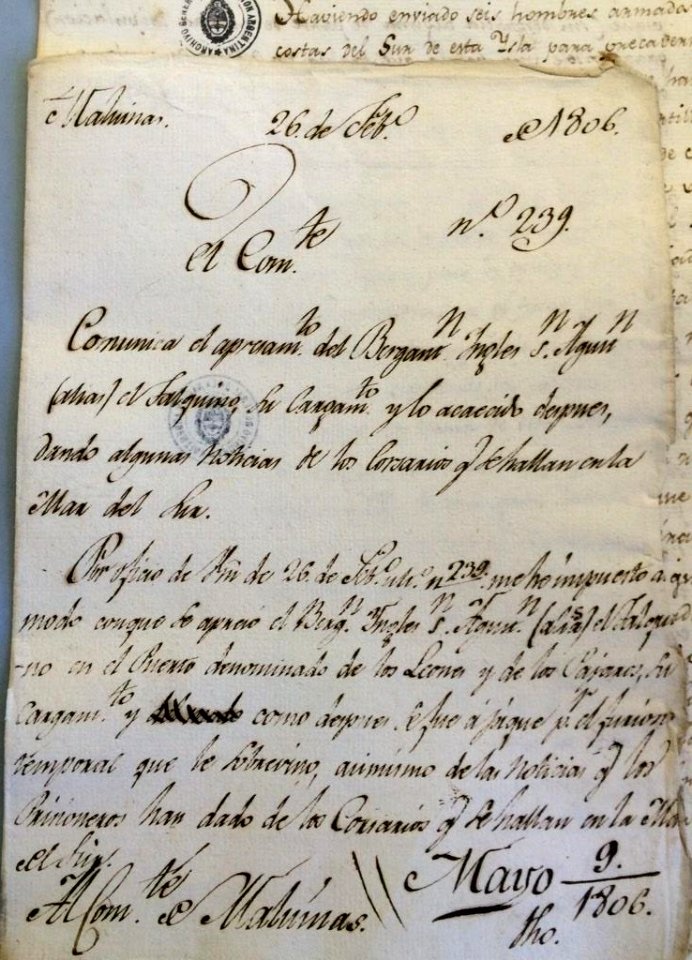 Haviendo enviado seis hombres armad
costas del Sur de esta Ysla para precaver
Malvinas. 26. de Feb.o de 1806.
El Com.te n.o 239.
Comunica el apresam.to del Bergant.n Ingles S.n Agus.n
(alias) el Salquino, su Cargam.to y lo acaecido despues,
dando algunas noticias de los Corsarios q.e se hallan en la
Mar del Sur.
Por oficio de Vm de 26. de Feb.o ult.o n.o 239. me he impuesto a
modo conque se apresó el Berg.n Ingles S.n Agus.n (alias) el
no en el Puerto denominado de los Leones y de los Pajares, su
Cargam.to y como despues se fue á pique p.r el furioso
temporal que le sobrevino, asimismo de las noticias q.e los
Pricioneros han dado de los Corsarios q.e se hallan en la Mar
del Sur.
Al Com.te de Malvinas. Mayo 9. 1806.
fho.